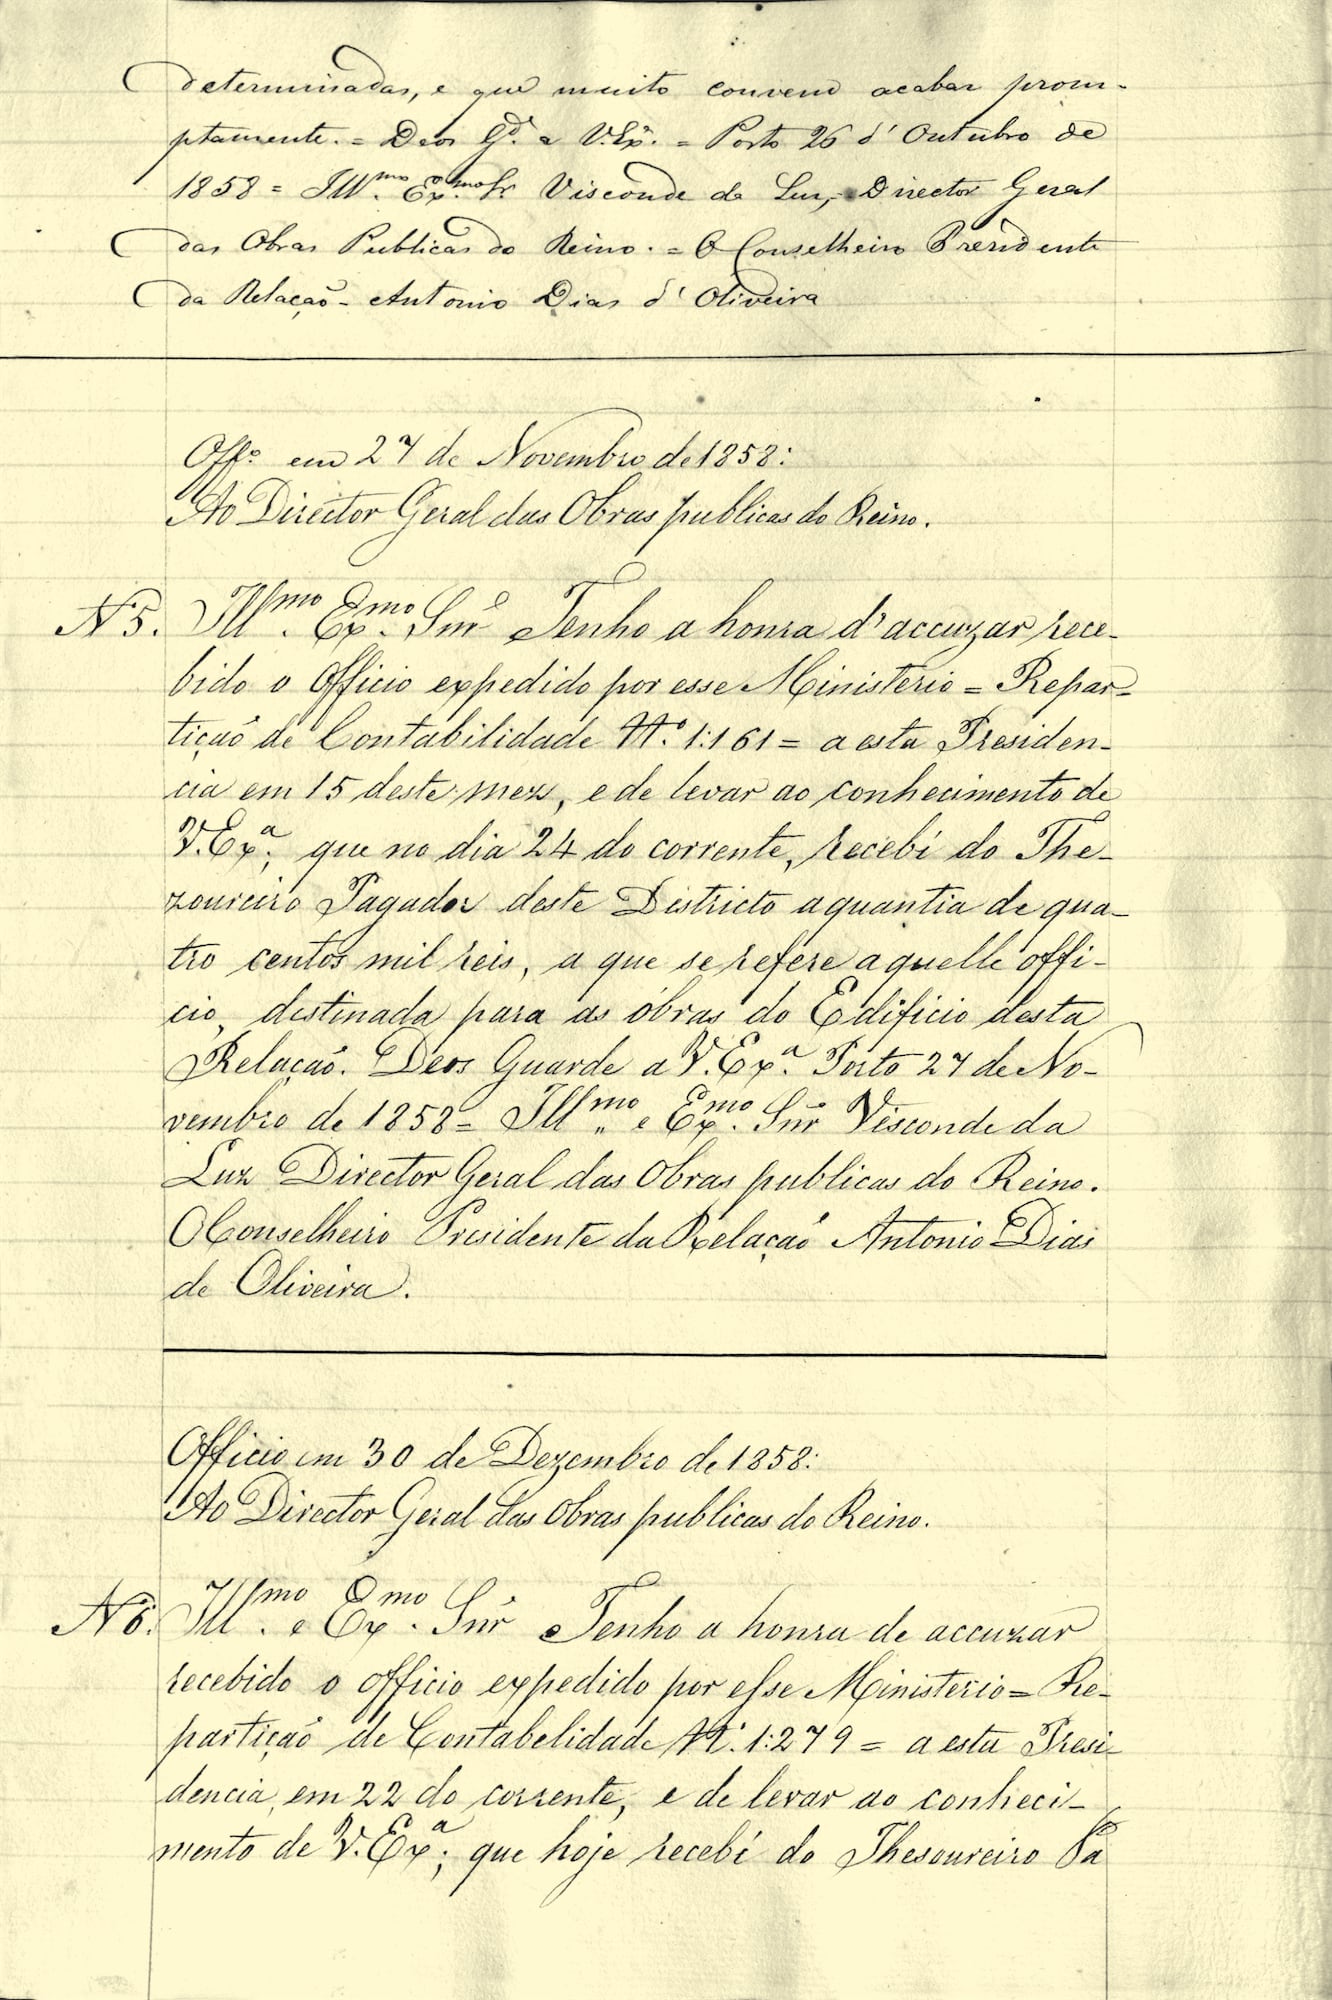 determinadas, e que muito convem acabar prom-
ptamente. = Deos G.de a V.Exª. = Porto 26 d'Outubro de
1858 = Ill.mo Ex.mo Sr. Visconde da Luz, Director Geral
das Obras Publicas do Reino. = O Conselheiro Presidente
da Relação - Antonio Dias d'Oliveira
Offº em 27 de Novembro de 1858:
Ao Director Geral das Obras publicas do Reino.
Nº5. Ill.mo Ex.mo Snr Tenho a honra d'accuzar rece-
bido o Officio expedido por esse Ministerio = Repar-
tição de Contabilidade Nº. 1:161 = a esta Presiden-
cia em 15 deste mez, e de levar ao conhecimento de
V.Ex.a; que no dia 24 do corrente, recebi do The-
zoureiro Pagador deste Districto a quantia de qua-
tro centos mil reis, a que se refere aquelle offi-
cio, destinada para as óbras do Edificio desta
Relação. Deos Guarde a V.Ex.a Porto 27 de No-
vembro de 1858 = Ill.mo e Ex.mo Snr Visconde da
Luz Director Geral das Obras publicas do Reino.
O Conselheiro Presidente da Relação Antonio Dias
de Oliveira.
Officio em 30 de Dezembro de 1858:
Ao Director Geral das Obras publicas do Reino.
Nº6. Ill.mo e Ex.mo Snr Tenho a honra de accuzar
recebido o officio expedido por esse Ministerio = Re-
partição de Contabelidade Nº. 1:279 = a esta Presi-
dencia, em 22 do corrente, e de levar ao conheci-
mento de V.Ex.a; que hoje recebí do Thesoureiro Pa